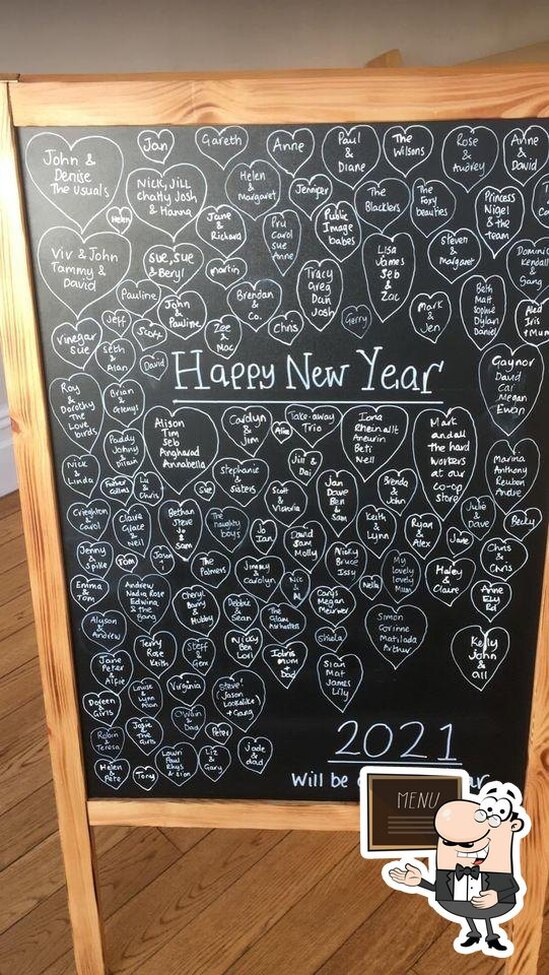 John &
Denise
The Usuals
Jan
Gareth
Anne
Paul
&
Diane
The
Wilsons
Rose
&
Audrey
Anne
&
David
Nick, Jill
Chatty Josh
& Hanna
Helen
&
Margaret
Jennifer
The
Blacklers
The
Foxy
beauties
Princess
Nigel
& the
team
Helen
Jane
&
Richard
Pru
Carol
Sue
Anne
Public
Image
babes
Viv & John
Tammy &
David
Sue, Sue
& Beryl
Martin
Lisa
James
Seb
&
Zac
Steven
&
Margaret
Pauline
John
&
Pauline
Brendan
&
Co.
Tracy
Greg
Dan
Josh
Mark
&
Jen
Beth
Matt
Sophie
Dylan
Daniel
Jeff
Zoe
&
Mac
Chris
Gerry
Iris
+ Mum
Vinegar
Sue
Seth
&
Alan
David
Happy New Year
Gaynor
David
Cai
Megan
Ewan
Roy
&
Dorothy
The
Love
birds
Brian
&
Glenys
Alison
Tim
Seb
Angharad
Annabella
Carolyn
&
Jim
Take-away
Trio
Iona
Rheinallt
Aneurin
Beti
Neil
Mark
and all
the hard
workers
at our
co-op
store
Paddy
Johny
&
Stephanie
&
Sisters
Jill &
Dai
Marina
Anthony
Reuben
Andre
Nick
&
Linda
Lu
&
Chris
Sue
Scott
&
Victoria
Jan
Dave
Ben
&
Sam
Brenda
&
John
Creighton
&
Carol
Claire
Grace
&
Neil
Bethan
Steve
Jo
&
Sam
The
naughty
boys
Jo
&
Ian
David
Sam
Molly
Keith
&
Lynn
Ryan
&
Alex
Julie
&
Dave
Jane
Becky
Jenny
&
Spike
Tom
The
Palmers
Jimmy
&
Carolyn
Nicky
Bruce
Issy
My
lovely
lovely
Mum
Haley
&
Claire
Chris
&
Chris
Emma
&
Tom
Andrew
Nadia Rose
Edwina
& the
Gang
Cheryl
Barry
&
Hubby
Debbie
&
Sean
The
Glam
Carys
Megan
Anne
Alyson
&
Andrew
Terry
Rose
Keith
Steff
&
Gem
Nicky
Ben
Lori
Sheila
Simon
Corinne
Matilda
Arthur
Kelly
John
&
all
Jane
Peter
&
Alfie
Idris
mum
+
Dad
Sian
Mat
James
Lily
Doreen
&
Girls
Louise
Lynn
Virginia
Steve!
Jason
+ Gang
Dad
Robin
&
Teresa
Josie
&
The
Girls
Peter
Helen
&
Pete
Tony
Lowri
Paul
Rhys
Liz
&
Gary
Jade
&
dad
2021
Will be
MENU